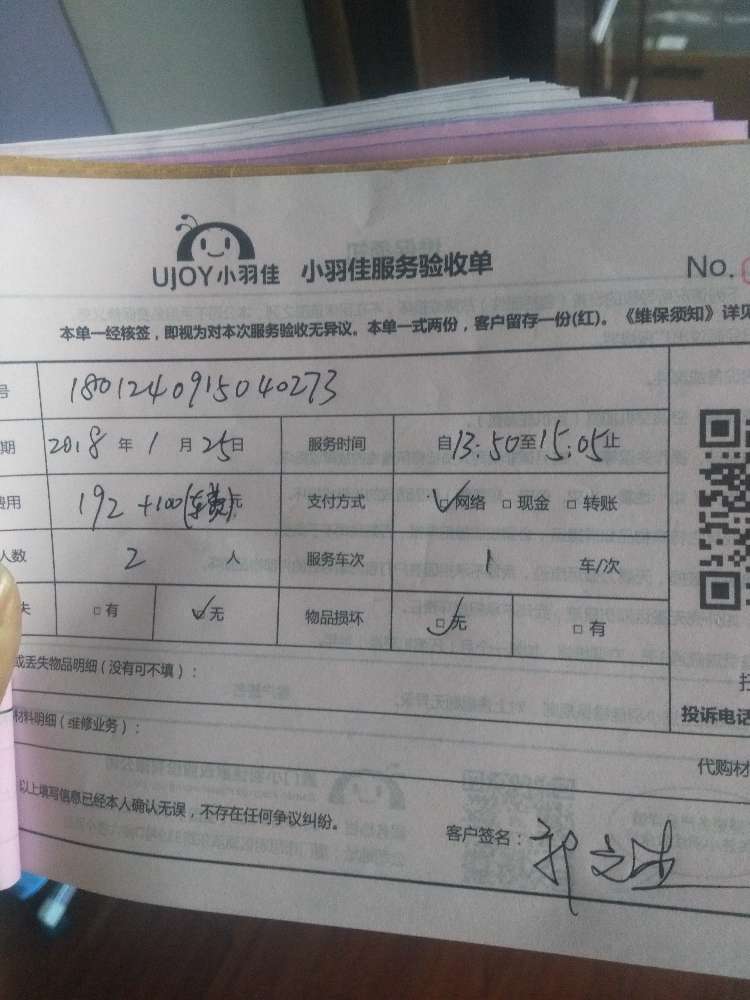 UJOY小羽佳 小羽佳服务验收单 No.
本单一经核签，即视为对本次服务验收无异议。本单一式两份，客户留存一份(红)。《维保须知》详见
号 1801240915040273
期 2018 年 1 月 25 日 服务时间 自 13:50 至 15:05 止
费用 192 +100(车费) 元 支付方式 网络 现金 转账
人数 2 人 服务车次 1 车/次
失 有 无 物品损坏 无 有
或丢失物品明细（没有可不填）：
投诉电话
材料明细（维修业务）：
代购材
以上填写信息已经本人确认无误，不存在任何争议纠纷。
客户签名：